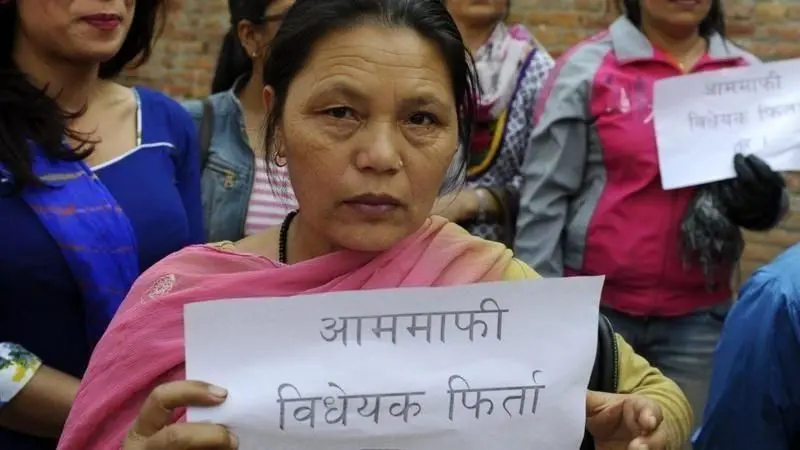 आममाफी
विधेयक फिर्ता
आममाफी
विधेयक फिर्ता